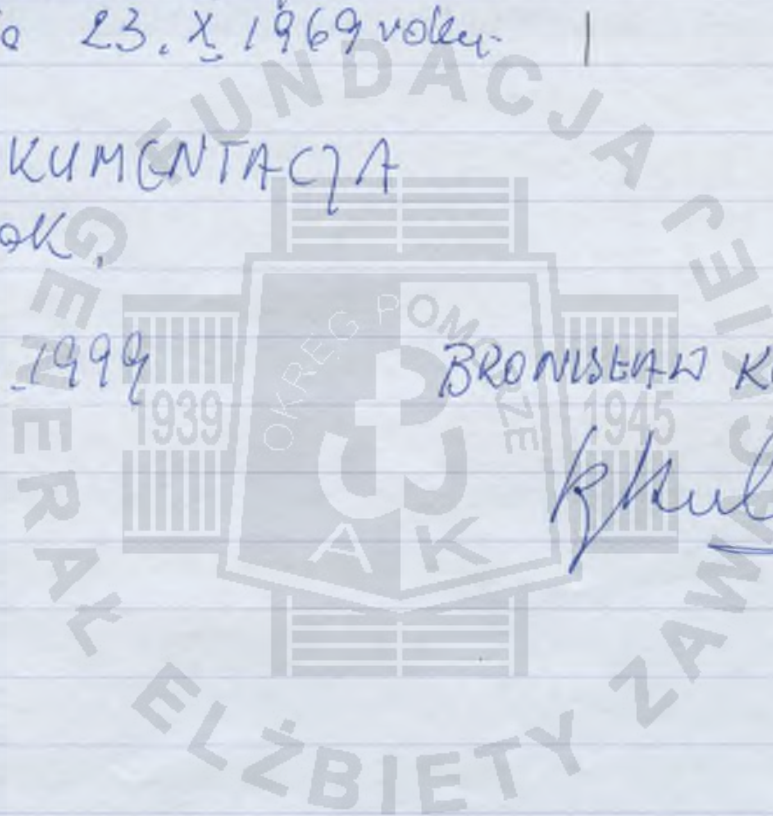 23. X 1969 roku
KUMENTACJA
OK.
1999
BRONISŁAW K
FUNDACJA
GENERAŁ
ELŻBIETY
ZAWACKIEJ
OKRĘG POMORZE
1939
1945
AK